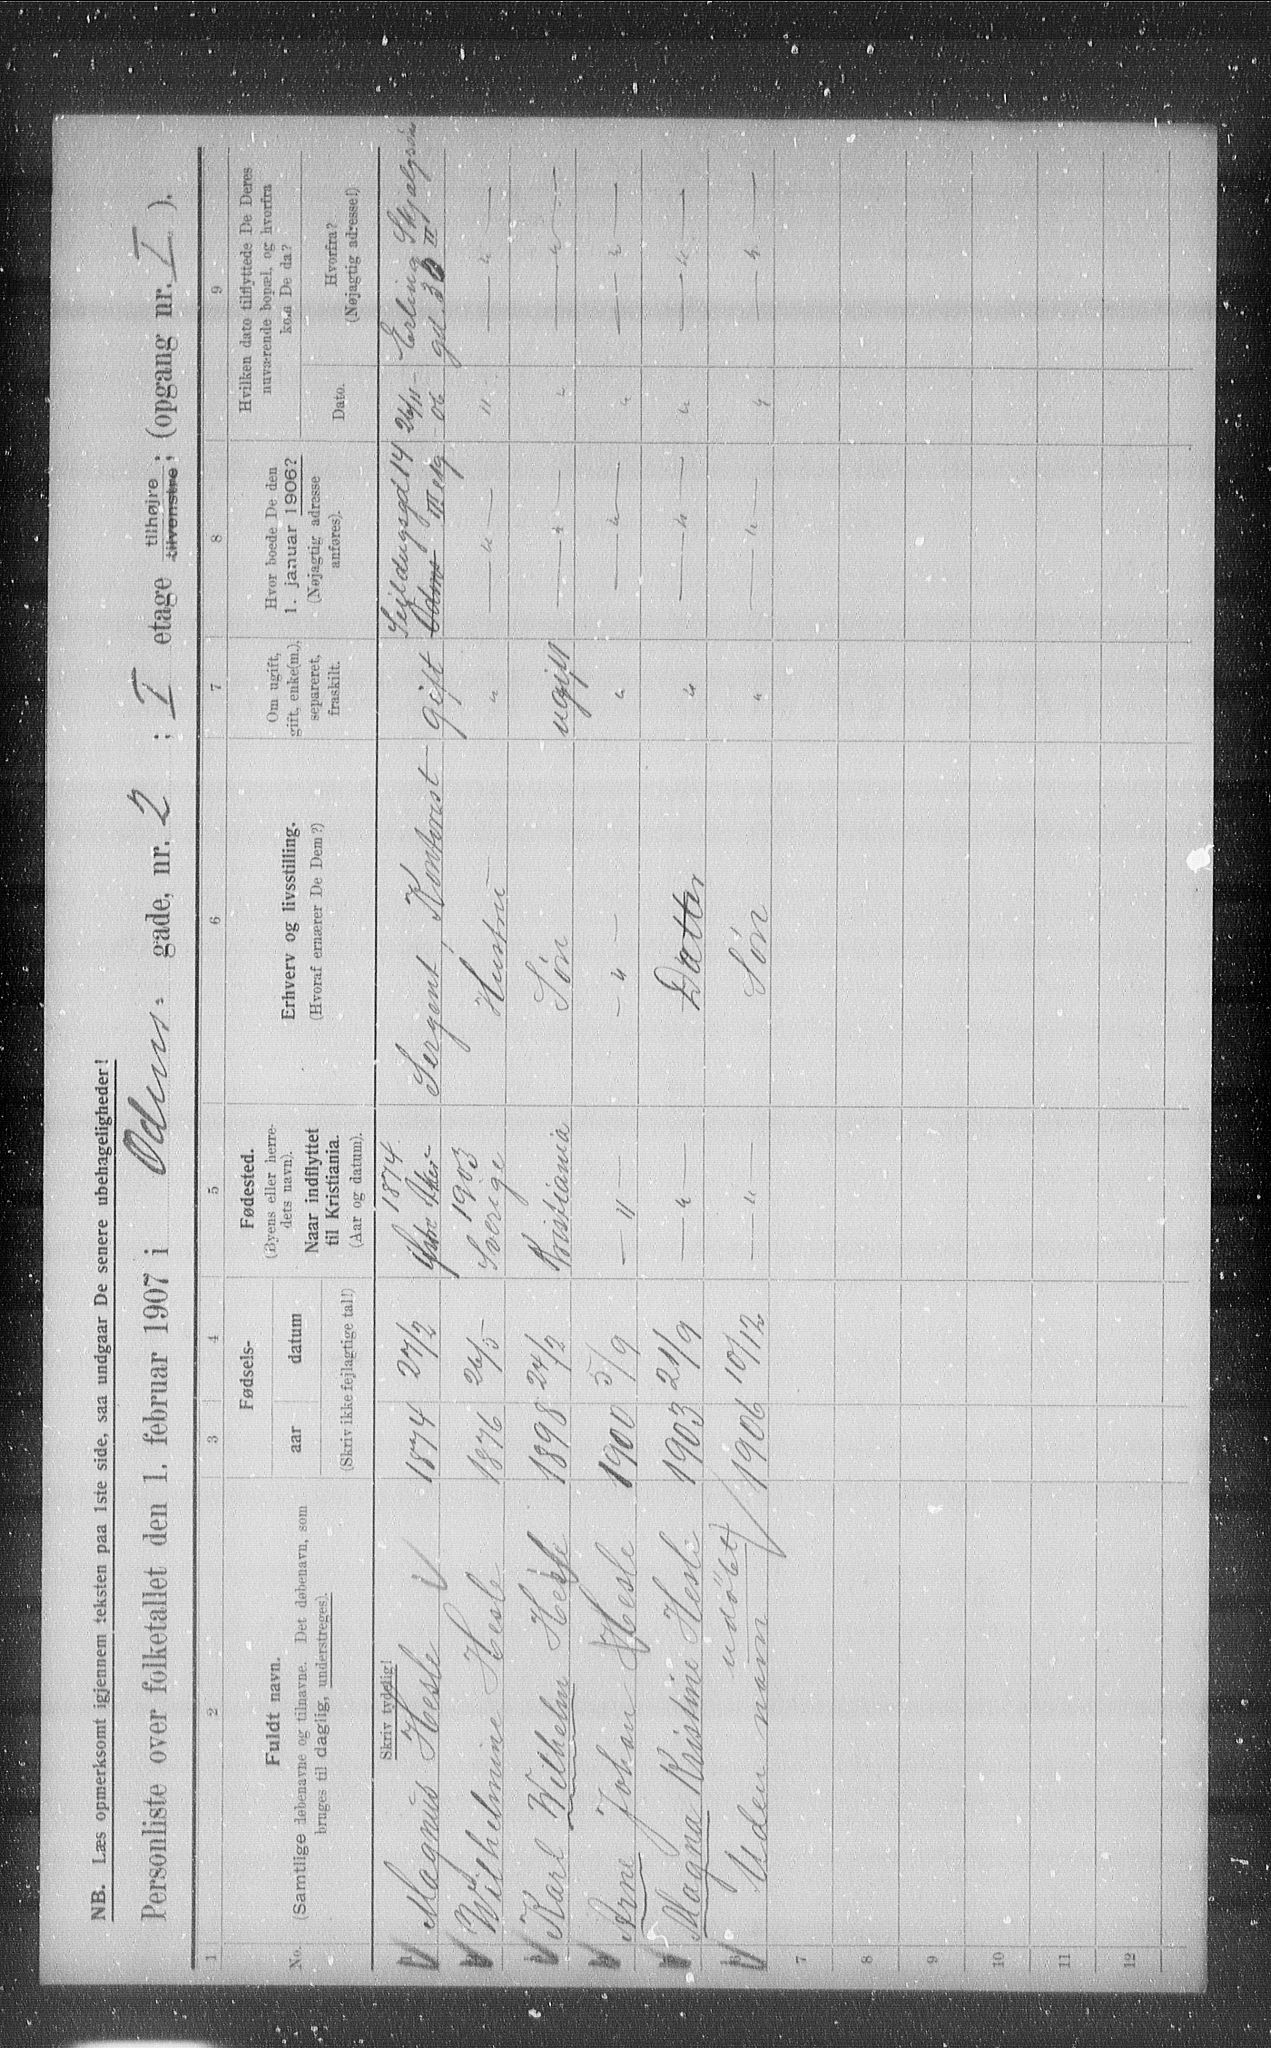 NB. Læs opmerksomt igjennem teksten paa 1ste side, saa undgaar De senere ubehageligheder!
Personliste over folketallet den 1. februar 1907 i Odins- gade, nr. 2 ; I etage tilhøjre tilvenstre ; (opgang nr. I ).
1 2 3 4 5 6 7 8 9
No.
Fuldt navn.
(Samtlige døbenavne og tilnavne. Det døbenavn, som
bruges til daglig, understreges).
Fødsels-
aar datum
(Skriv ikke fejlagtige tal!)
Fødested.
(Byens eller herre-
dets navn).
Naar indflyttet
til Kristiania.
(Aar og datum).
Erhverv og livsstilling.
(Hvoraf ernærer De Dem?)
Om ugift,
gift, enke(m.),
separeret,
fraskilt.
Hvor boede De den
1. januar 1906?
(Nøjagtig adresse
anføres).
Hvilken dato tilflyttede De Deres
nuværende bopæl, og hvorfra
kom De da?
Dato.
Hvorfra?
(Nøjagtig adresse!)
Skriv tydelig!
Magnus Hesle 1874 27/2 1874 Sergent, Kontorist gift Sejldugsgd 14 III etg 26/11-06 Erling Skjalgsøns gd. 3b II
Wilhelmine Hesle 1876 26/5 1903 Sverige Hustru " — " — " — " —
Karl Wilhelm Hesle 1898 24/2 Kristiania Søn ugift — " — " — " —
Arne Johan Hesle 1900 5/9 — " — — " — " — " — " — " —
Magna Kristine Hesle 1903 21/9 — " — Datter " — " — " — " —
Uden navn udöbt 1906 10/12 — " — Søn " — " — " — " —
7
8
9
10
11
12